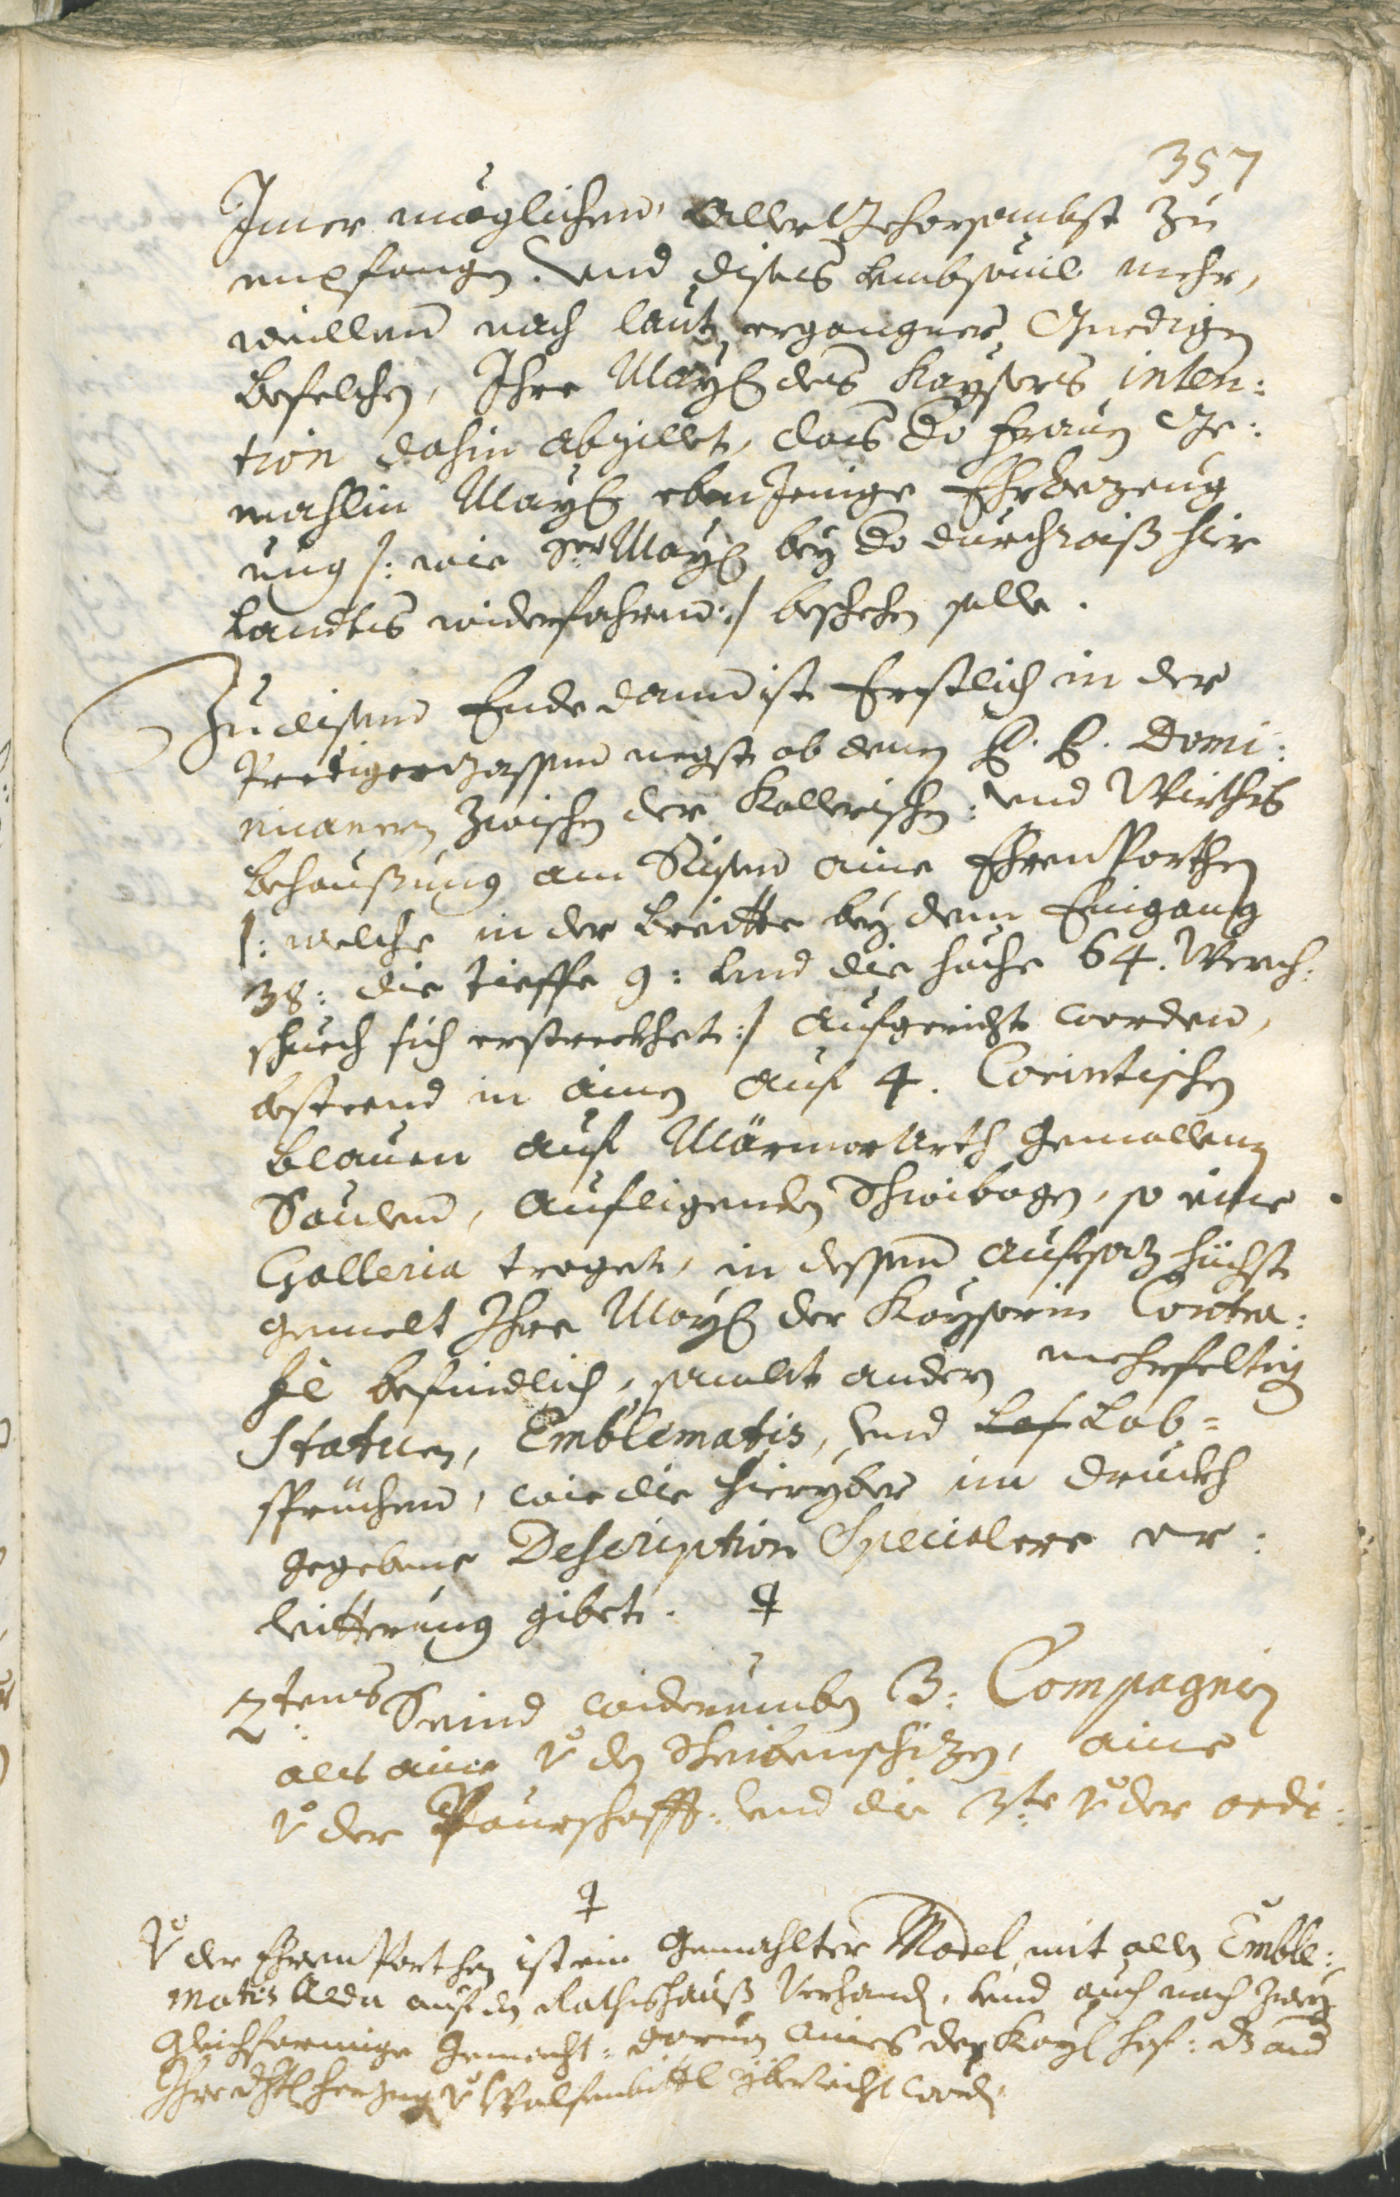 357
Imer möglichen, AllerGehorsambst zu
empfangen. Und disses umbsouil mehr,
weillen nach lauth ergangner Gnedigen
befelchen, Ihre May: des Kaysers inten:
tion dahin abzillet, das Do Frauen Ge:
mahlin May: eben Jenige Ehrbezeug
ung /: wie Ser May: bey Do durchraiß hier
Landtes widerfahren :/ beschehen solle.
Zu disem Ende dann ist Erstlich in der
Predigergassen negst ob denen E. E. Domi:
nicanern zwischen der Kallerischen: und Wirths
behaußung am Risen aine EhrenPorthen
/: welche in der braitte bey dem Eingang
38: die tieffe 9: und die höche 64. Werch:
schuech sich erstreckhet :/ aufgericht worden,
bestehend in ainem auf 4. Corintischen
blauen auf MärmorArth gemallenen
Saulen, aufligenden Schwibogen, so eine
Galleria traget, in dessen aufsaz höchst
gemelt Ihre May: der Kayserin Contra:
fe befindlich, sambt andern mehrfeltig
Statuen, Emblematis, und Lob Lob=
sprüchen, wie die hieryber im druckh
gegebene Description Specialere er:
leitterung gibet. ‡
2tens Seind widerumben 3: Compagnien
als aine v. den Scheibenschizen, aine
v. der Paurschafft: und die 3te v. der ordi:
‡
V. der EhrenPorthen ist ein gemahlter Model mit allen Emble:
matis Alda auf den Rathshauß Verhanden, und auch noch zwey
gleichformige gemacht: darvon aines der Kay: hof: dz and
Ihre Dhtl: Herzog v. Wolfenbittl überreicht worden